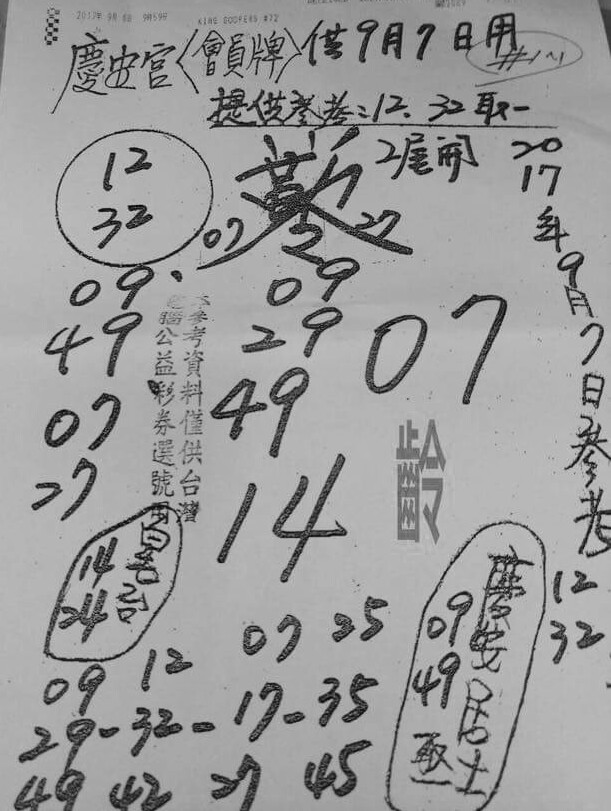 2017年 9月 6日 9時59分 KING GOOFERS #72
慶安宮〈會員牌〉供9月7日用
提供參考:12、32取一
12
32
2尾開
07 27
2017年9月7日參考
12
32
09
49
07
27
09
29
49
07
本參考資料僅供台灣
電腦公益彩券選號用
14
14
24
09 12 07 25
29-32-17-35
49 42 27 45
慶安居士
09
49